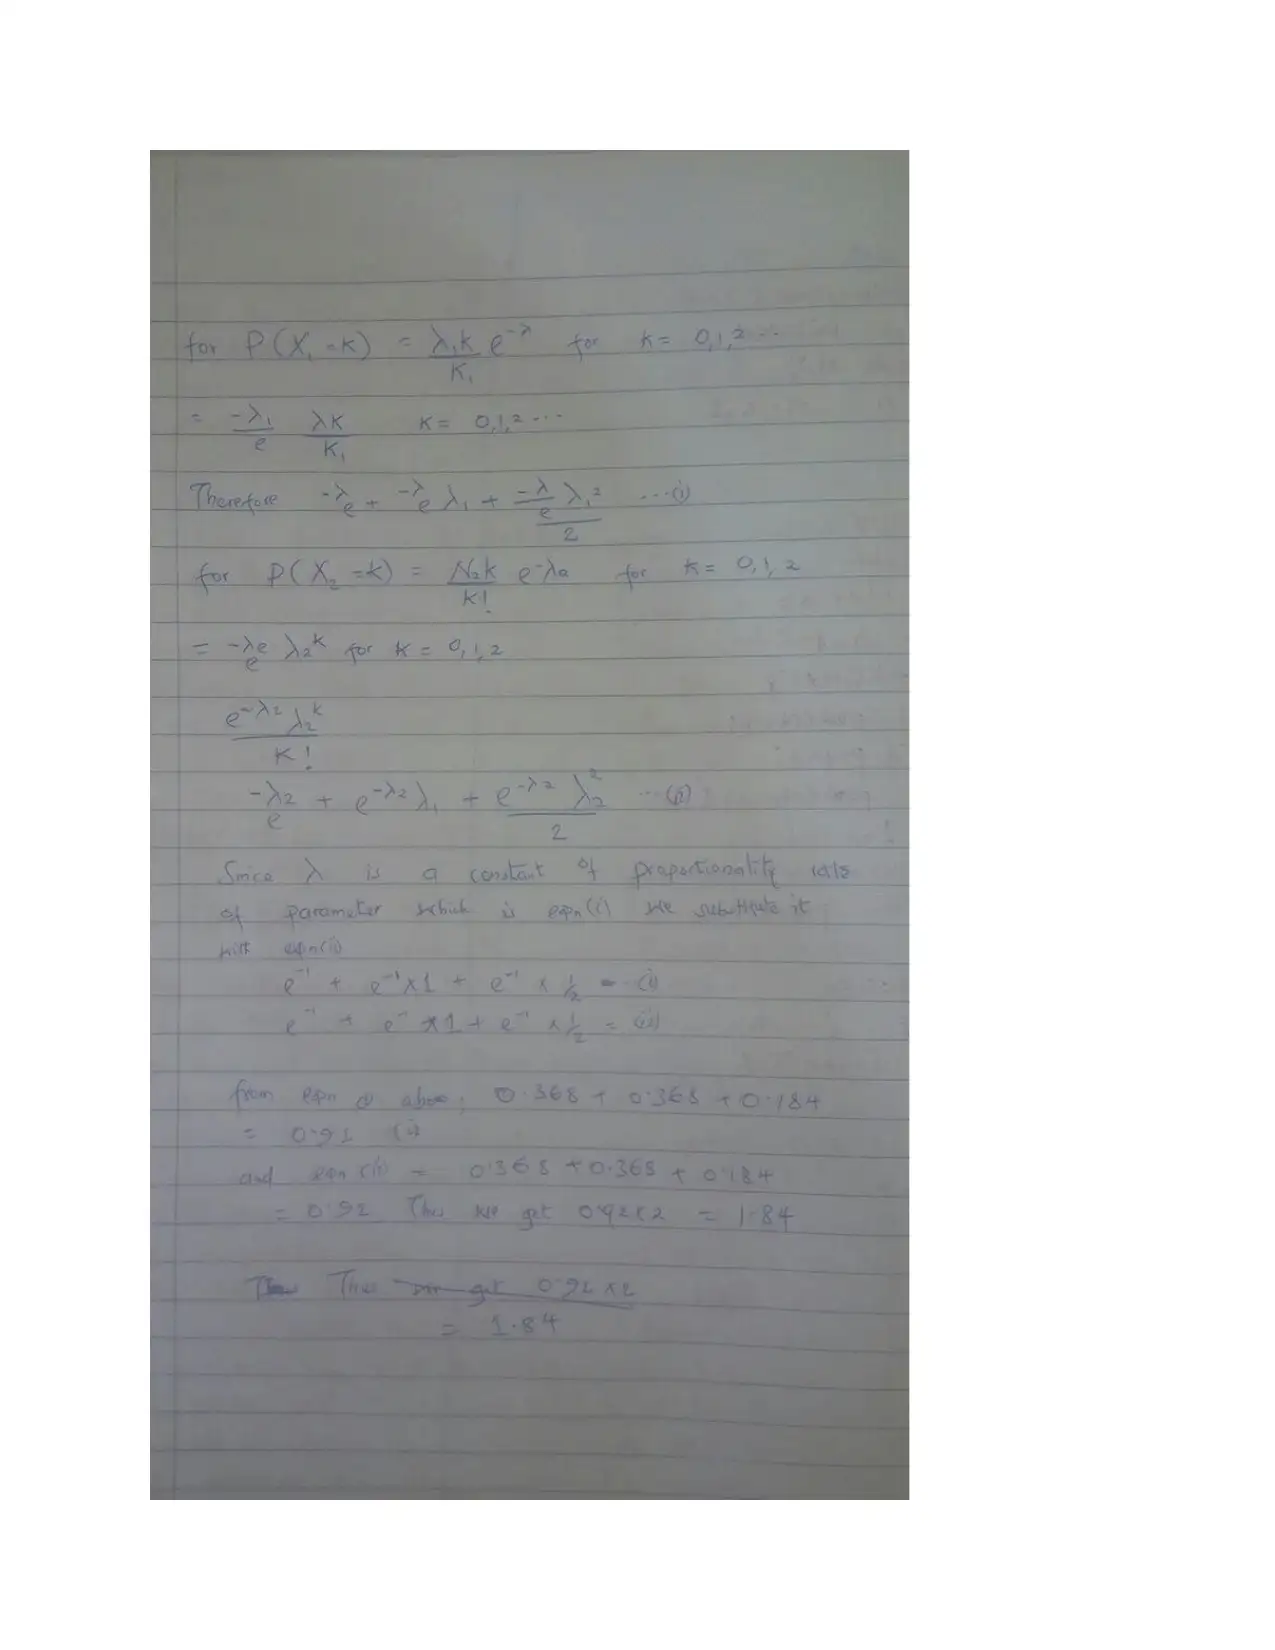 for P(X₁ = K) = λ₁k e^-λ / K₁ for K = 0,1,2 ...
= -λ₁/e λK/K₁ K = 0,1,2 ...
Therefore -λ/e + -λ/e λ₁ + -λ/e λ₁²/2 ...(i)
for P(X₂ = K) = k/K! e^-λ for K = 0,1,2
= -λe/e λ₂^k for K = 0,1,2
e^-λ₂ λ₂^k / K!
-λ₂/e + e^-λ₂ λ₁ + e^-λ₂ λ₂²/2 ...(ii)
Since λ is a constant of proportionality
of parameter which is eqn(i) we substitute it
with eqn(ii)
e^-1 + e^-1 x 1 + e^-1 x 1/2 = (i)
e^-1 + e^-1 x 1 + e^-1 x 1/2 = (ii)
from eqn above; 0.368 + 0.368 + 0.184
= 0.91 (i)
and eqn (ii) = 0.368 + 0.368 + 0.184
= 0.92 Thus we get 0.92x2 = 1.84
Thus get 0.92 x2
= 1.84